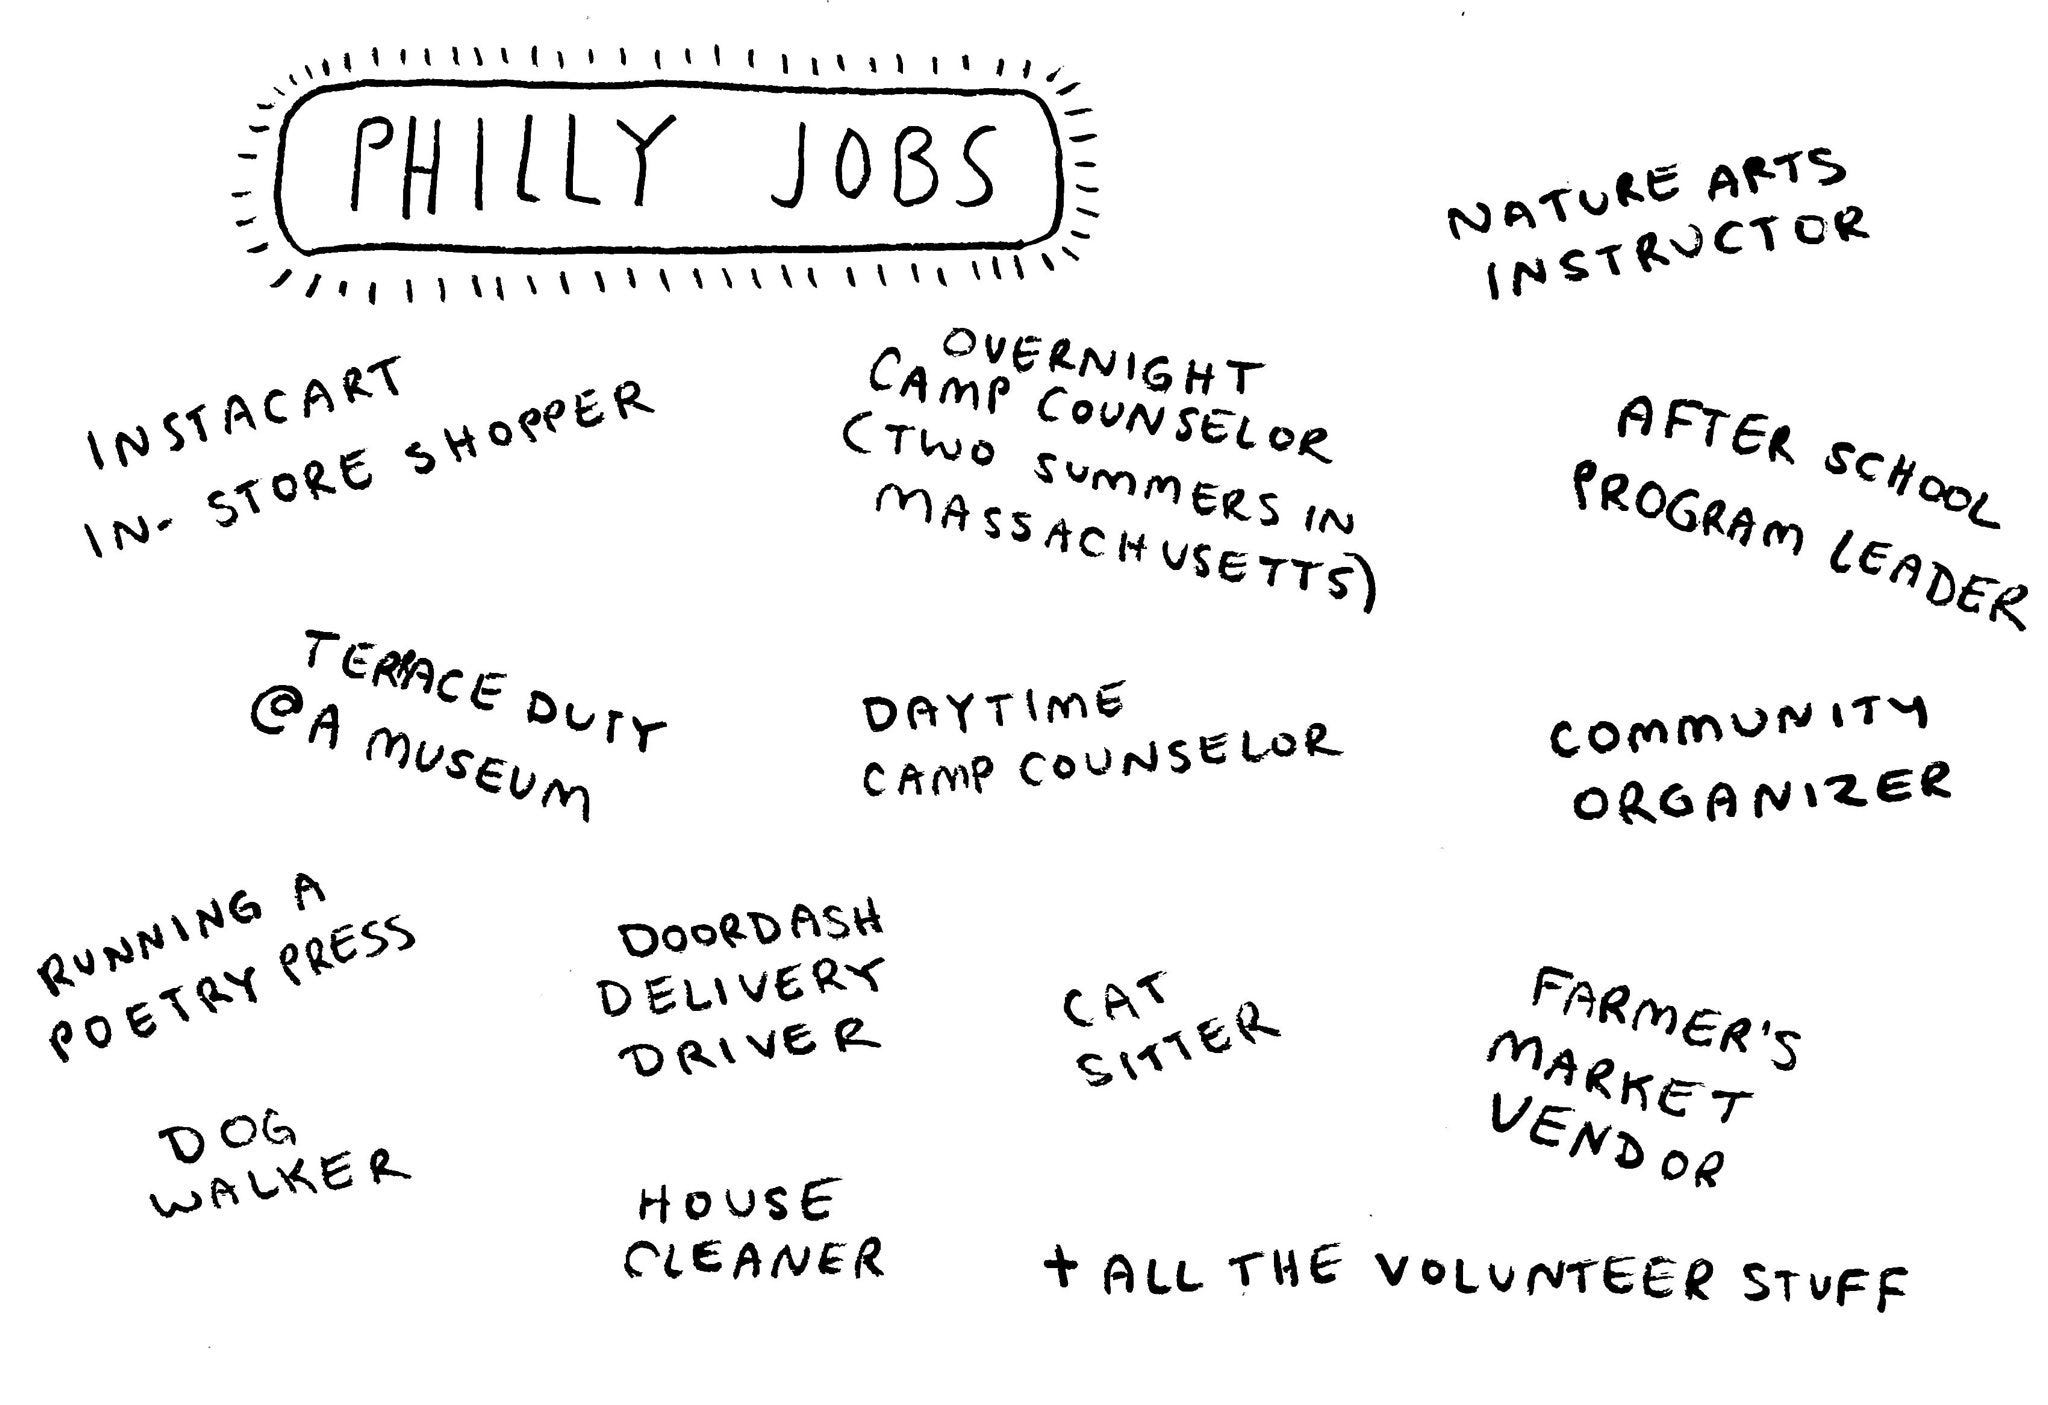 PHILLY JOBS
NATURE ARTS
INSTRUCTOR
INSTACART
IN-STORE SHOPPER
OVERNIGHT
CAMP COUNSELOR
(TWO SUMMERS IN
MASSACHUSETTS)
AFTER SCHOOL
PROGRAM LEADER
TERRACE DUTY
@A MUSEUM
DAYTIME
CAMP COUNSELOR
COMMUNITY
ORGANIZER
RUNNING A
POETRY PRESS
DOORDASH
DELIVERY
DRIVER
CAT
SITTER
FARMER'S
MARKET
VENDOR
DOG
WALKER
HOUSE
CLEANER
+ ALL THE VOLUNTEER STUFF